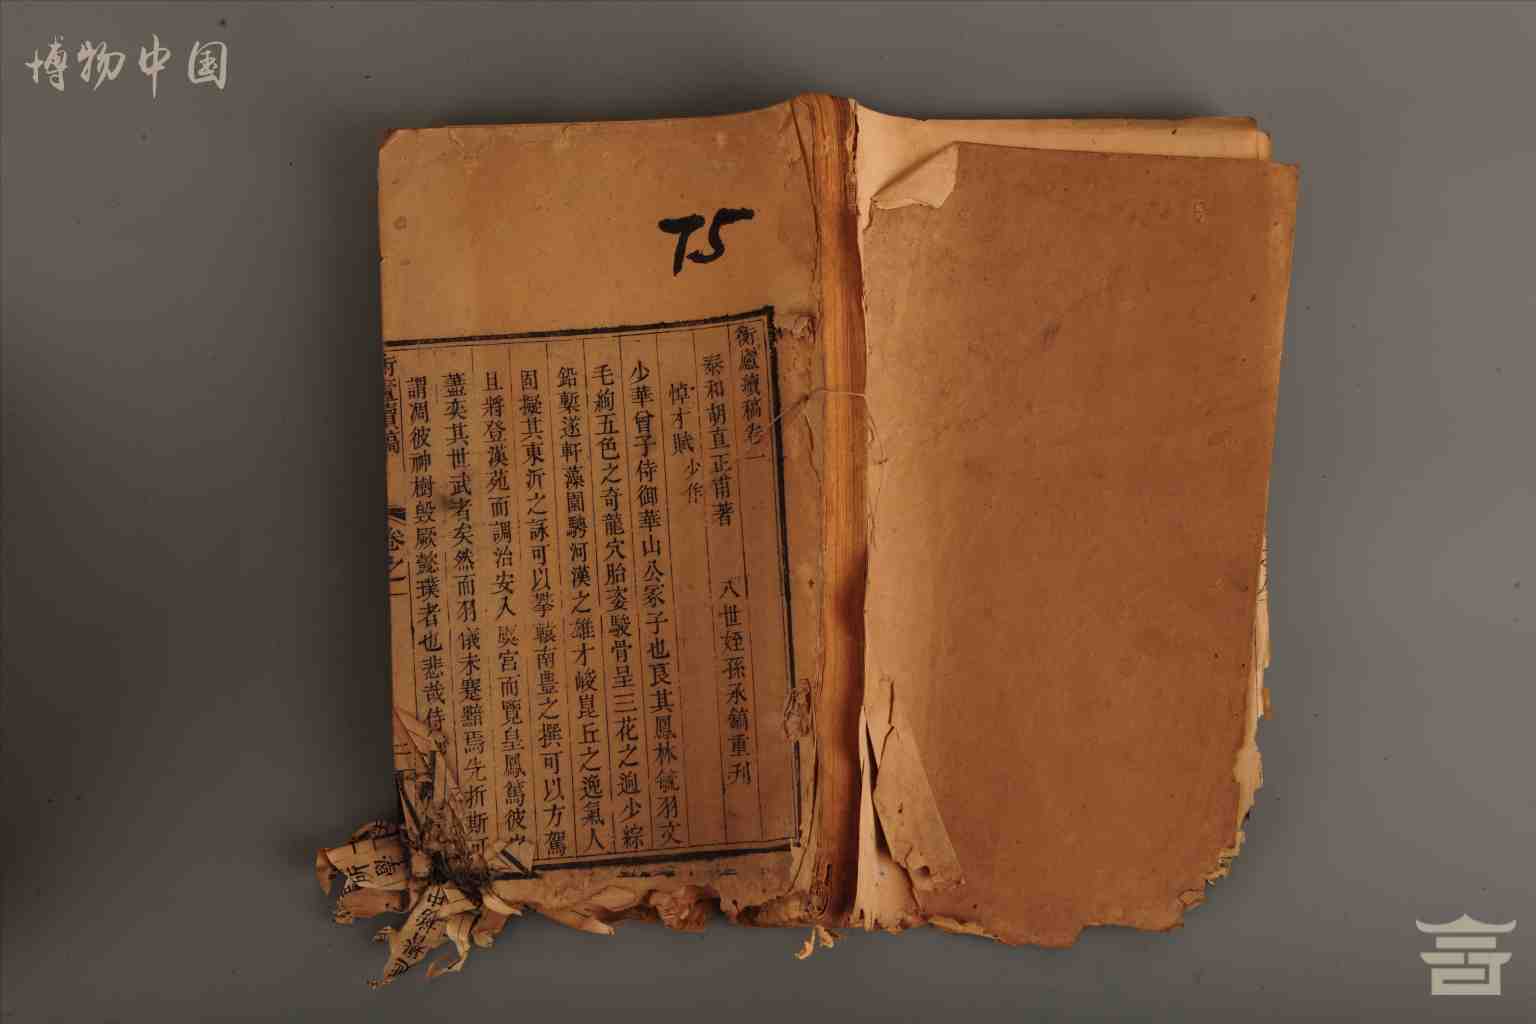 博物中国
T5
衡廬續稿卷一
泰和胡直正甫著 八世姪孫承鎬重刊
悼才賦 少作
少華曾子侍御華山公冢子也良其鳳林毓羽文
毛絢五色之奇龍穴胎姿駿骨呈三花之迥少綜
鉛槧遂軒藻園騁河漢之雄才峻崑丘之逸氣人
固擬其東沂之詠可以攀轅南豐之撰可以方駕
且將登漢苑而調治安入 宮而覽皇鳳篤彼
蓋奕其世武者矣然而羽儀未騫黯焉先折斯可
謂凋彼神樹毀厥懿璞者也悲哉侍
續稿 卷之一